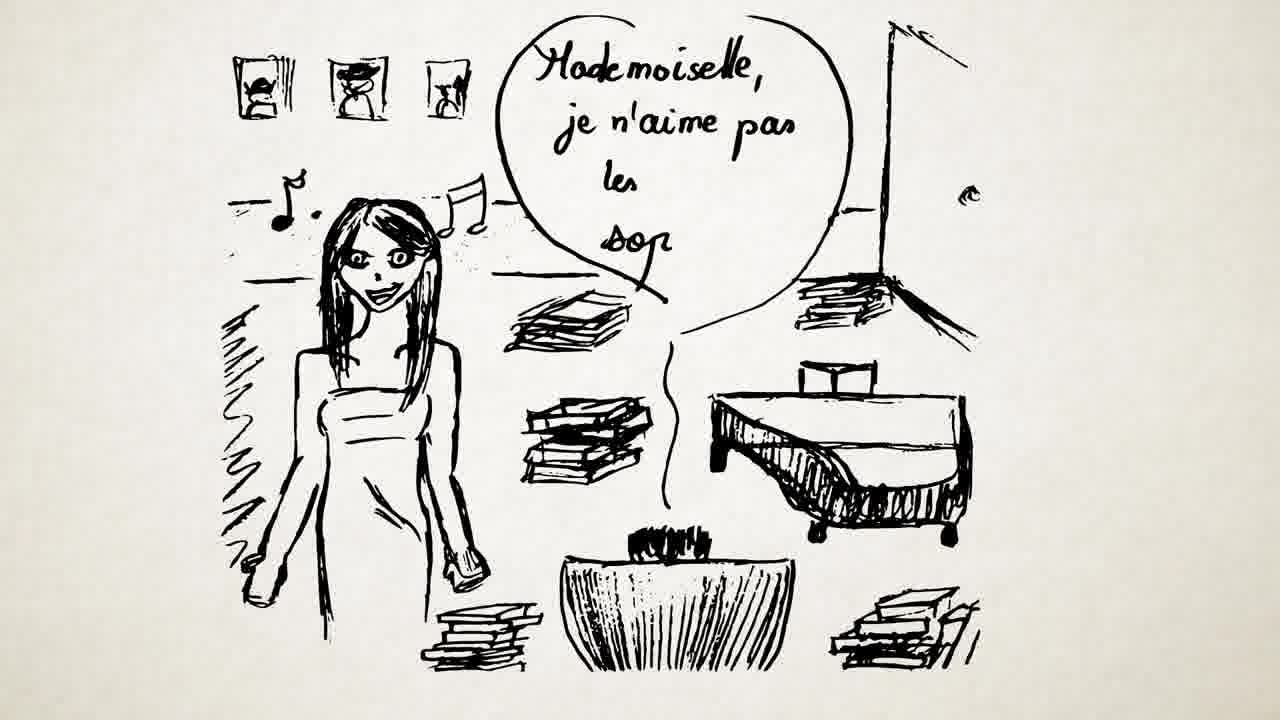 Mademoiselle,
je n'aime pas
les
sop